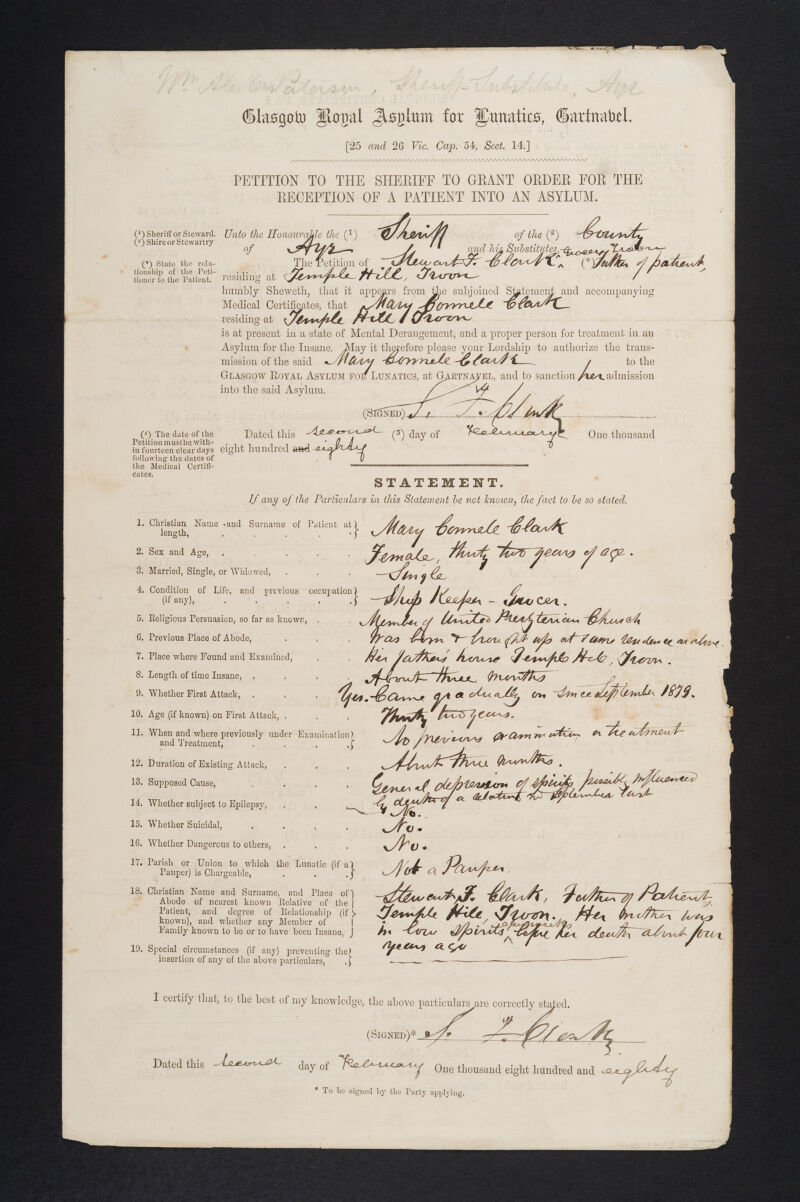 Wm Alexr Paterson, Sheriff-Substitute, Ayr
Glasgow Royal Asylum for Lunatics, Gartnavel.
[25 and 26 Vic. Cap. 54, Sect. 14.]
PETITION TO THE SHERIFF TO GRANT ORDER FOR THE
RECEPTION OF A PATIENT INTO AN ASYLUM.
(1) Sheriff or Steward.
(2) Shire or Stewartry
Unto the Honourable the (1) Sheriff of the (2) County
of Ayr and his Substitutes,
(*) State the relationship of the Petitioner to the Patient.
The Petition of Stewart F. Clark, Grocer, Troon (* Father of patient,
residing at Temple Hill, Troon
humbly Sheweth, that it appears from the subjoined Statement and accompanying
Medical Certificates, that Mary Connele Clark
residing at Temple Hill Troon
is at present in a state of Mental Derangement, and a proper person for treatment in an
Asylum for the Insane. May it therefore please your Lordship to authorize the trans-
mission of the said Mary Connele Clark to the
GLASGOW ROYAL ASYLUM FOR LUNATICS, at GARTNAVEL, and to sanction her admission
into the said Asylum.
(SIGNED) S. F. Clark
(3) The date of the
Petition must be with-
in fourteen clear days
following the dates of
the Medical Certifi-
cates.
Dated this second (3) day of February One thousand
eight hundred and eighty
STATEMENT.
If any of the Particulars in this Statement be not known, the fact to be so stated.
1. Christian Name and Surname of Patient at length, Mary Connele Clark
2. Sex and Age, Female, thirty two years of age.
3. Married, Single, or Widowed, Single
4. Condition of Life, and previous occupation (if any), Shop Keeper - Grocer.
5. Religious Persuasion, so far as known, Member of United Presbyterian Church
6. Previous Place of Abode, Was born & brought up at same residence as above.
7. Place where Found and Examined, Her father's house Temple Hill, Troon.
8. Length of time Insane, About three months
9. Whether First Attack, Yes. Came gradually on since September 1879.
10. Age (if known) on First Attack, Thirty two years.
11. When and where previously under Examination and Treatment, No previous examination or treatment
12. Duration of Existing Attack, About three months.
13. Supposed Cause, General depression of spirits possibly influenced
by death of a relative in September last
14. Whether subject to Epilepsy, No.
15. Whether Suicidal, No.
16. Whether Dangerous to others, No.
17. Parish or Union to which the Lunatic (if a Pauper) is Chargeable, Not a Pauper.
18. Christian Name and Surname, and Place of Abode of nearest known Relative of the Patient, and degree of Relationship (if known), and whether any Member of Family known to be or to have been Insane, Stewart F. Clark, Father of Patient,
Temple Hill, Troon. Her mother was
in low spirits before her death about four
years ago
19. Special circumstances (if any) preventing the insertion of any of the above particulars,
I certify that, to the best of my knowledge, the above particulars are correctly stated.
(SIGNED)* S. F. Clark
Dated this second day of February One thousand eight hundred and eighty
* To be signed by the Party applying.